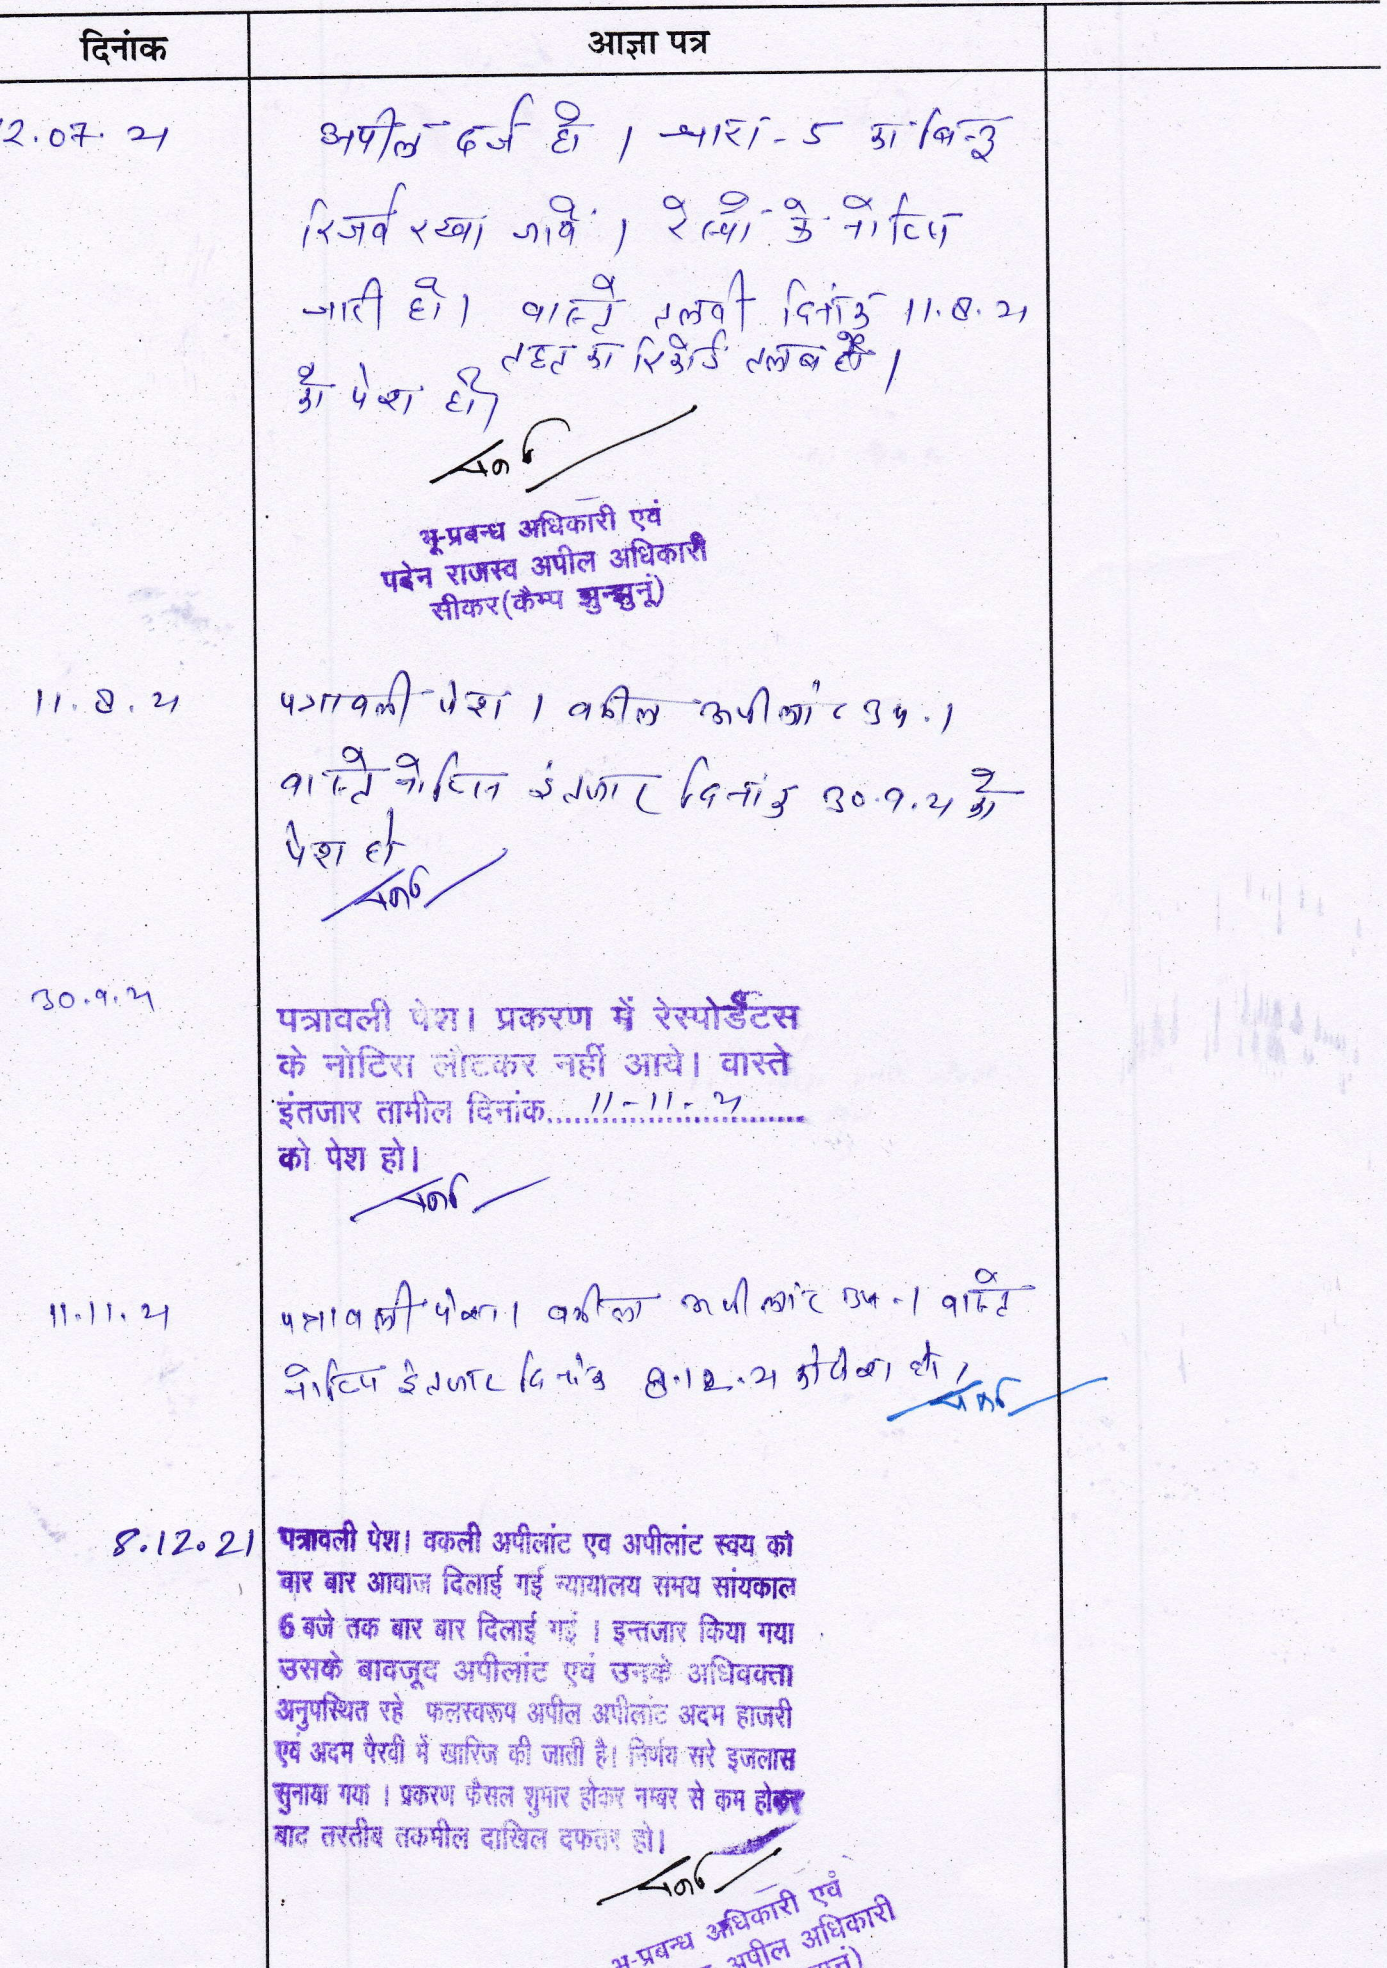 दिनांक आज्ञा पत्र
2.07.21 अपील दर्ज हो । धारा-5 का बिन्दु
रिजर्व रखा जावें । रेस्पो के नोटिस
जारी हो। वास्ते तलबी दिनांक 11.8.21
तहत का रिकॉर्ड तलब हो ।
को पेश हो।
भू-प्रबन्ध अधिकारी एवं
पदेन राजस्व अपील अधिकारी
सीकर(कैम्प झुन्झुनूं)
11.8.21 पत्रावली पेश । वकील अपीलांट उप.।
वास्ते नोटिस इंतजार दिनांक 30.9.21 को
पेश हो
30.9.21
पत्रावली पेश। प्रकरण में रेस्पोडेंटस
के नोटिस लौटकर नहीं आये। वास्ते
इंतजार तामील दिनांक....11-11-21....
को पेश हो।
11.11.21 पत्रावली पेश। वकील अपीलांट उप.। वास्ते
नोटिस इंतजार दिनांक 8.12.21 को पेश हो।
8.12.21 पत्रावली पेश। वकली अपीलांट एव अपीलांट स्वय को
बार बार आवाज दिलाई गई न्यायालय समय सांयकाल
6 बजे तक बार बार दिलाई गई । इन्तजार किया गया
उसके बावजूद अपीलांट एवं उनके अधिवक्ता
अनुपस्थित रहे फलस्वरूप अपील अपीलांट अदम हाजरी
एवं अदम पैरवी में खारिज की जाती है। निर्णय सरे इजलास
सुनाया गया । प्रकरण फैसल शुमार होकर नम्बर से कम होकर
बाद तरतीब तकमील दाखिल दफतर हो।
भू-प्रबन्ध अधिकारी एवं
अपील अधिकारी